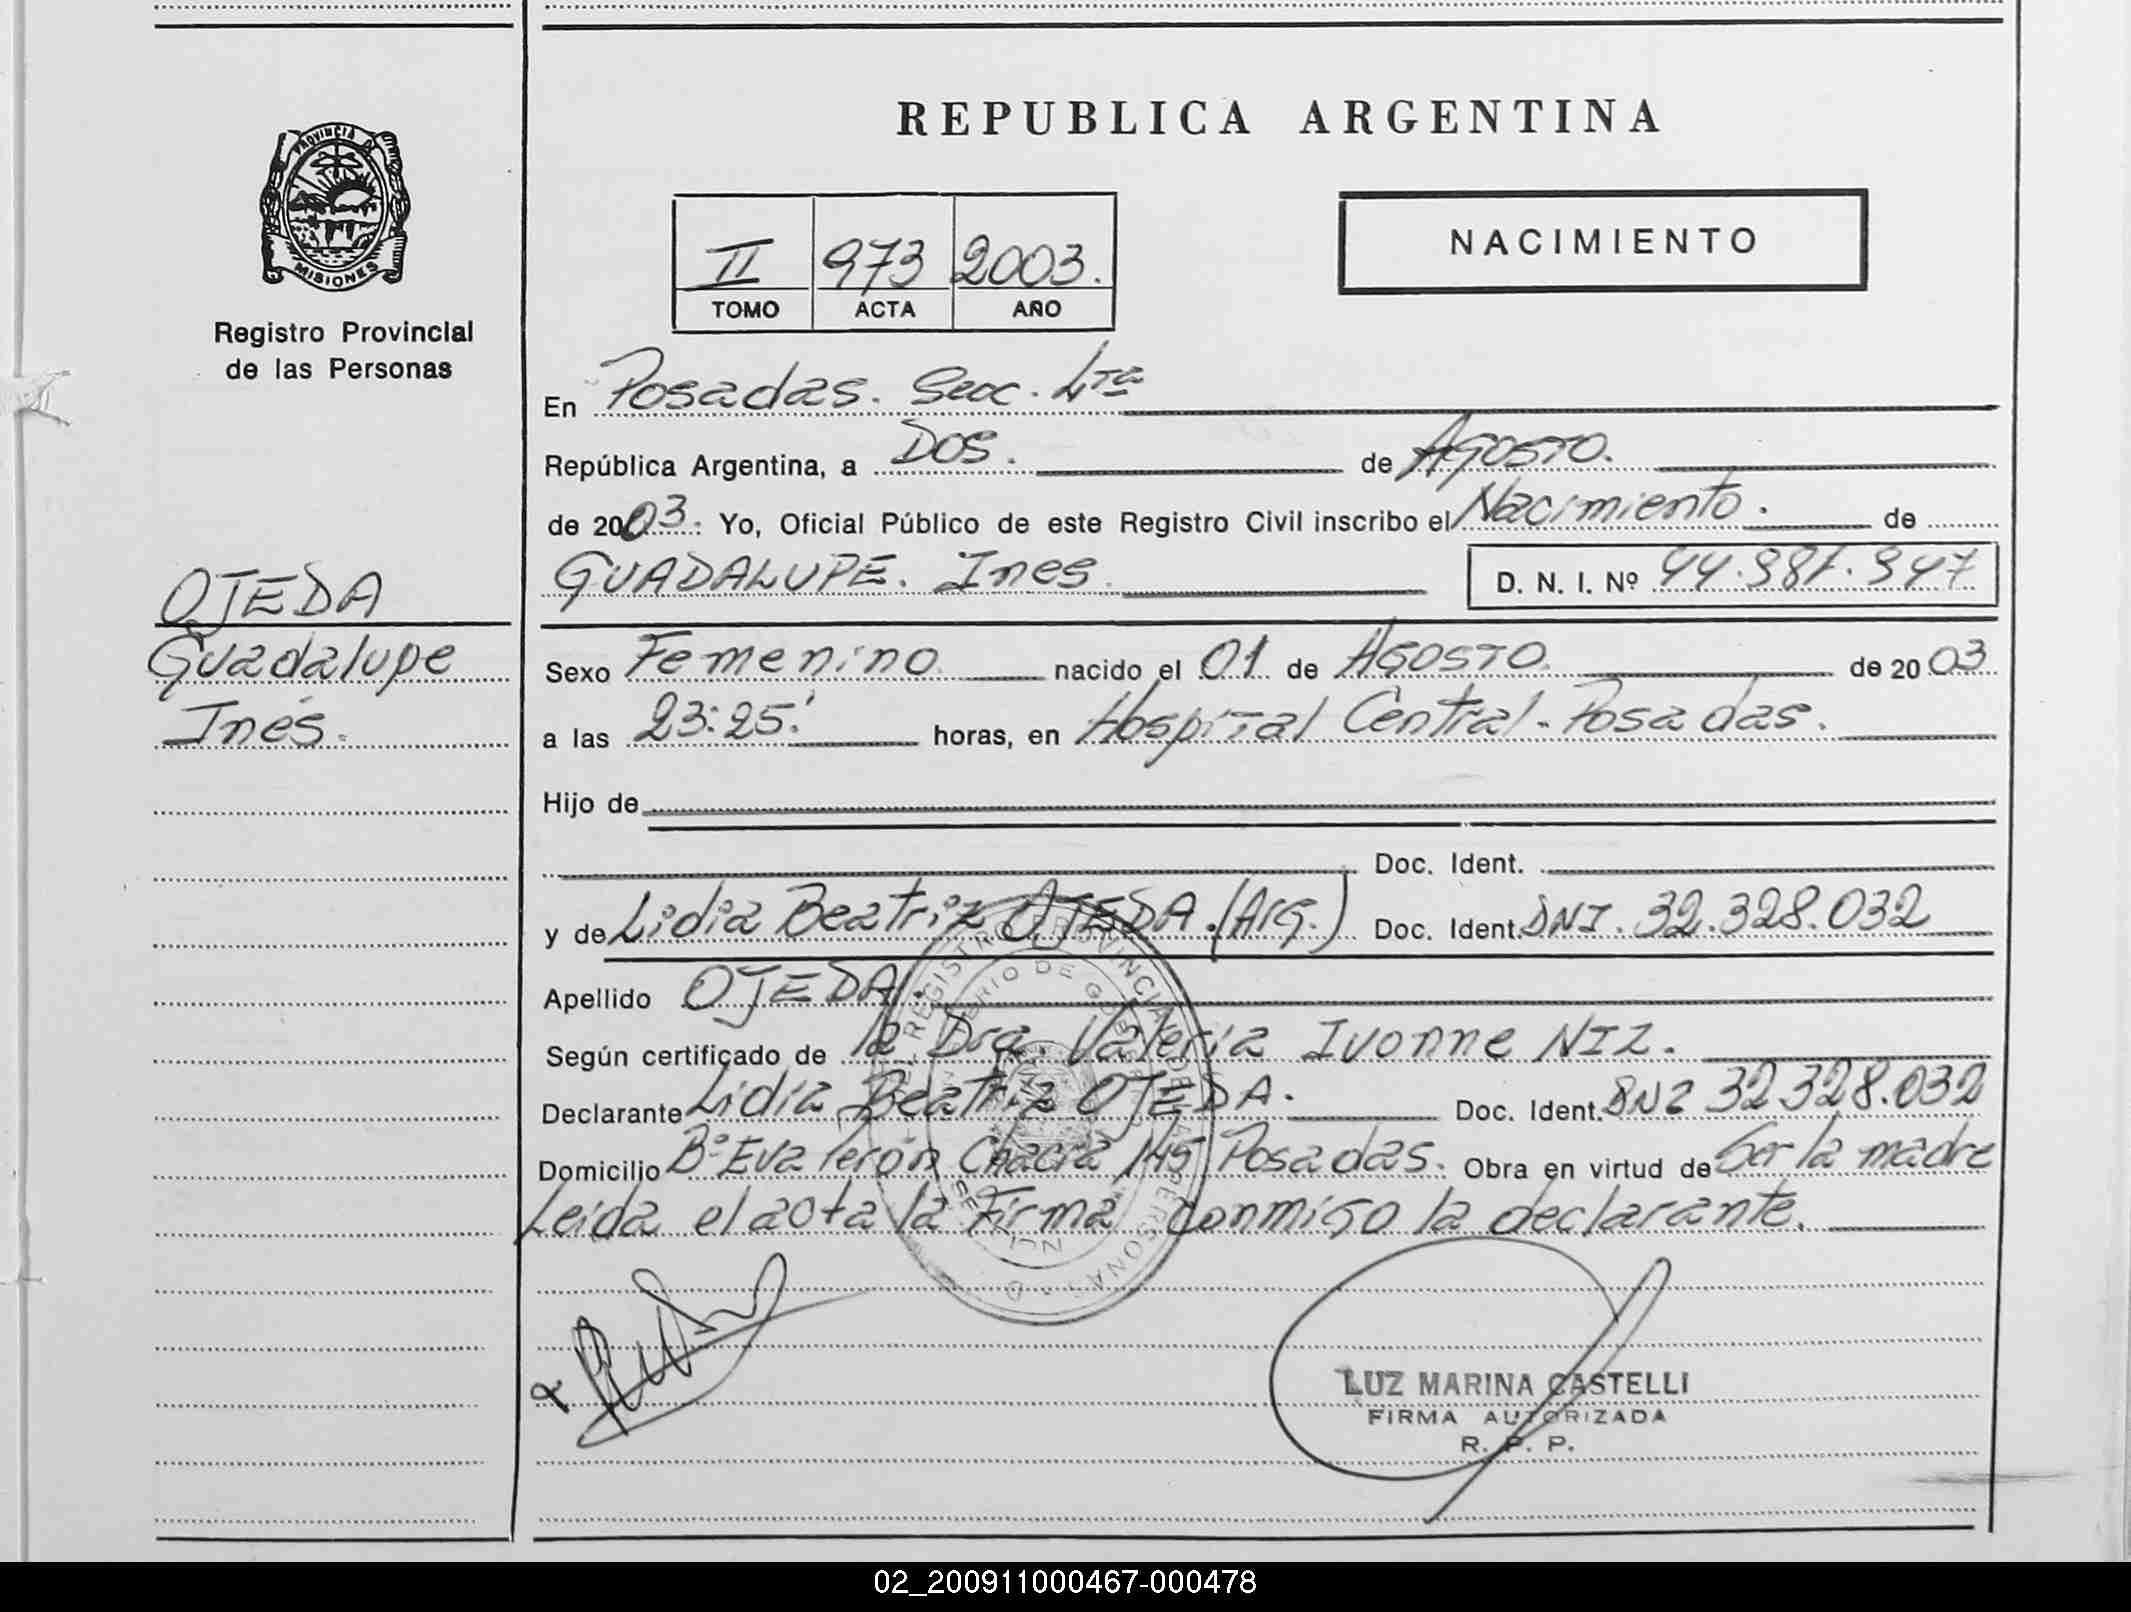 REPUBLICA ARGENTINA
PROVINCIA DE MISIONES
Registro Provincial
de las Personas
NACIMIENTO
II 973 2003.
TOMO ACTA AÑO
En Posadas. Secc. 4ta
República Argentina, a DOS. de AGOSTO.
de 2003. Yo, Oficial Público de este Registro Civil inscribo el Nacimiento. de
GUADALUPE. Ines. D. N. I. Nº
OJEDA
Guadalupe
Inés.
Sexo Femenino nacido el 01 de AGOSTO. de 2003
a las 23:25' horas, en Hospital Central - Posadas.
Hijo de
Doc. Ident.
y de Lidia Beatriz OJEDA. (Arg.) Doc. Ident. DNI. 32.328.032
Apellido OJEDA.
Según certificado de la Dra. Valeria Ivonne NIZ.
Declarante Lidia Beatriz OJEDA. Doc. Ident. DNI 32.328.032
Domicilio Bº Eva Perón Chacra 145 Posadas. Obra en virtud de Ser la madre
Leida el acta la Firma conmigo la declarante.
REGISTRO PROVINCIAL DE LAS PERSONAS
LUZ MARINA CASTELLI
FIRMA AUTORIZADA
R. P. P.
02_200911000467-000478